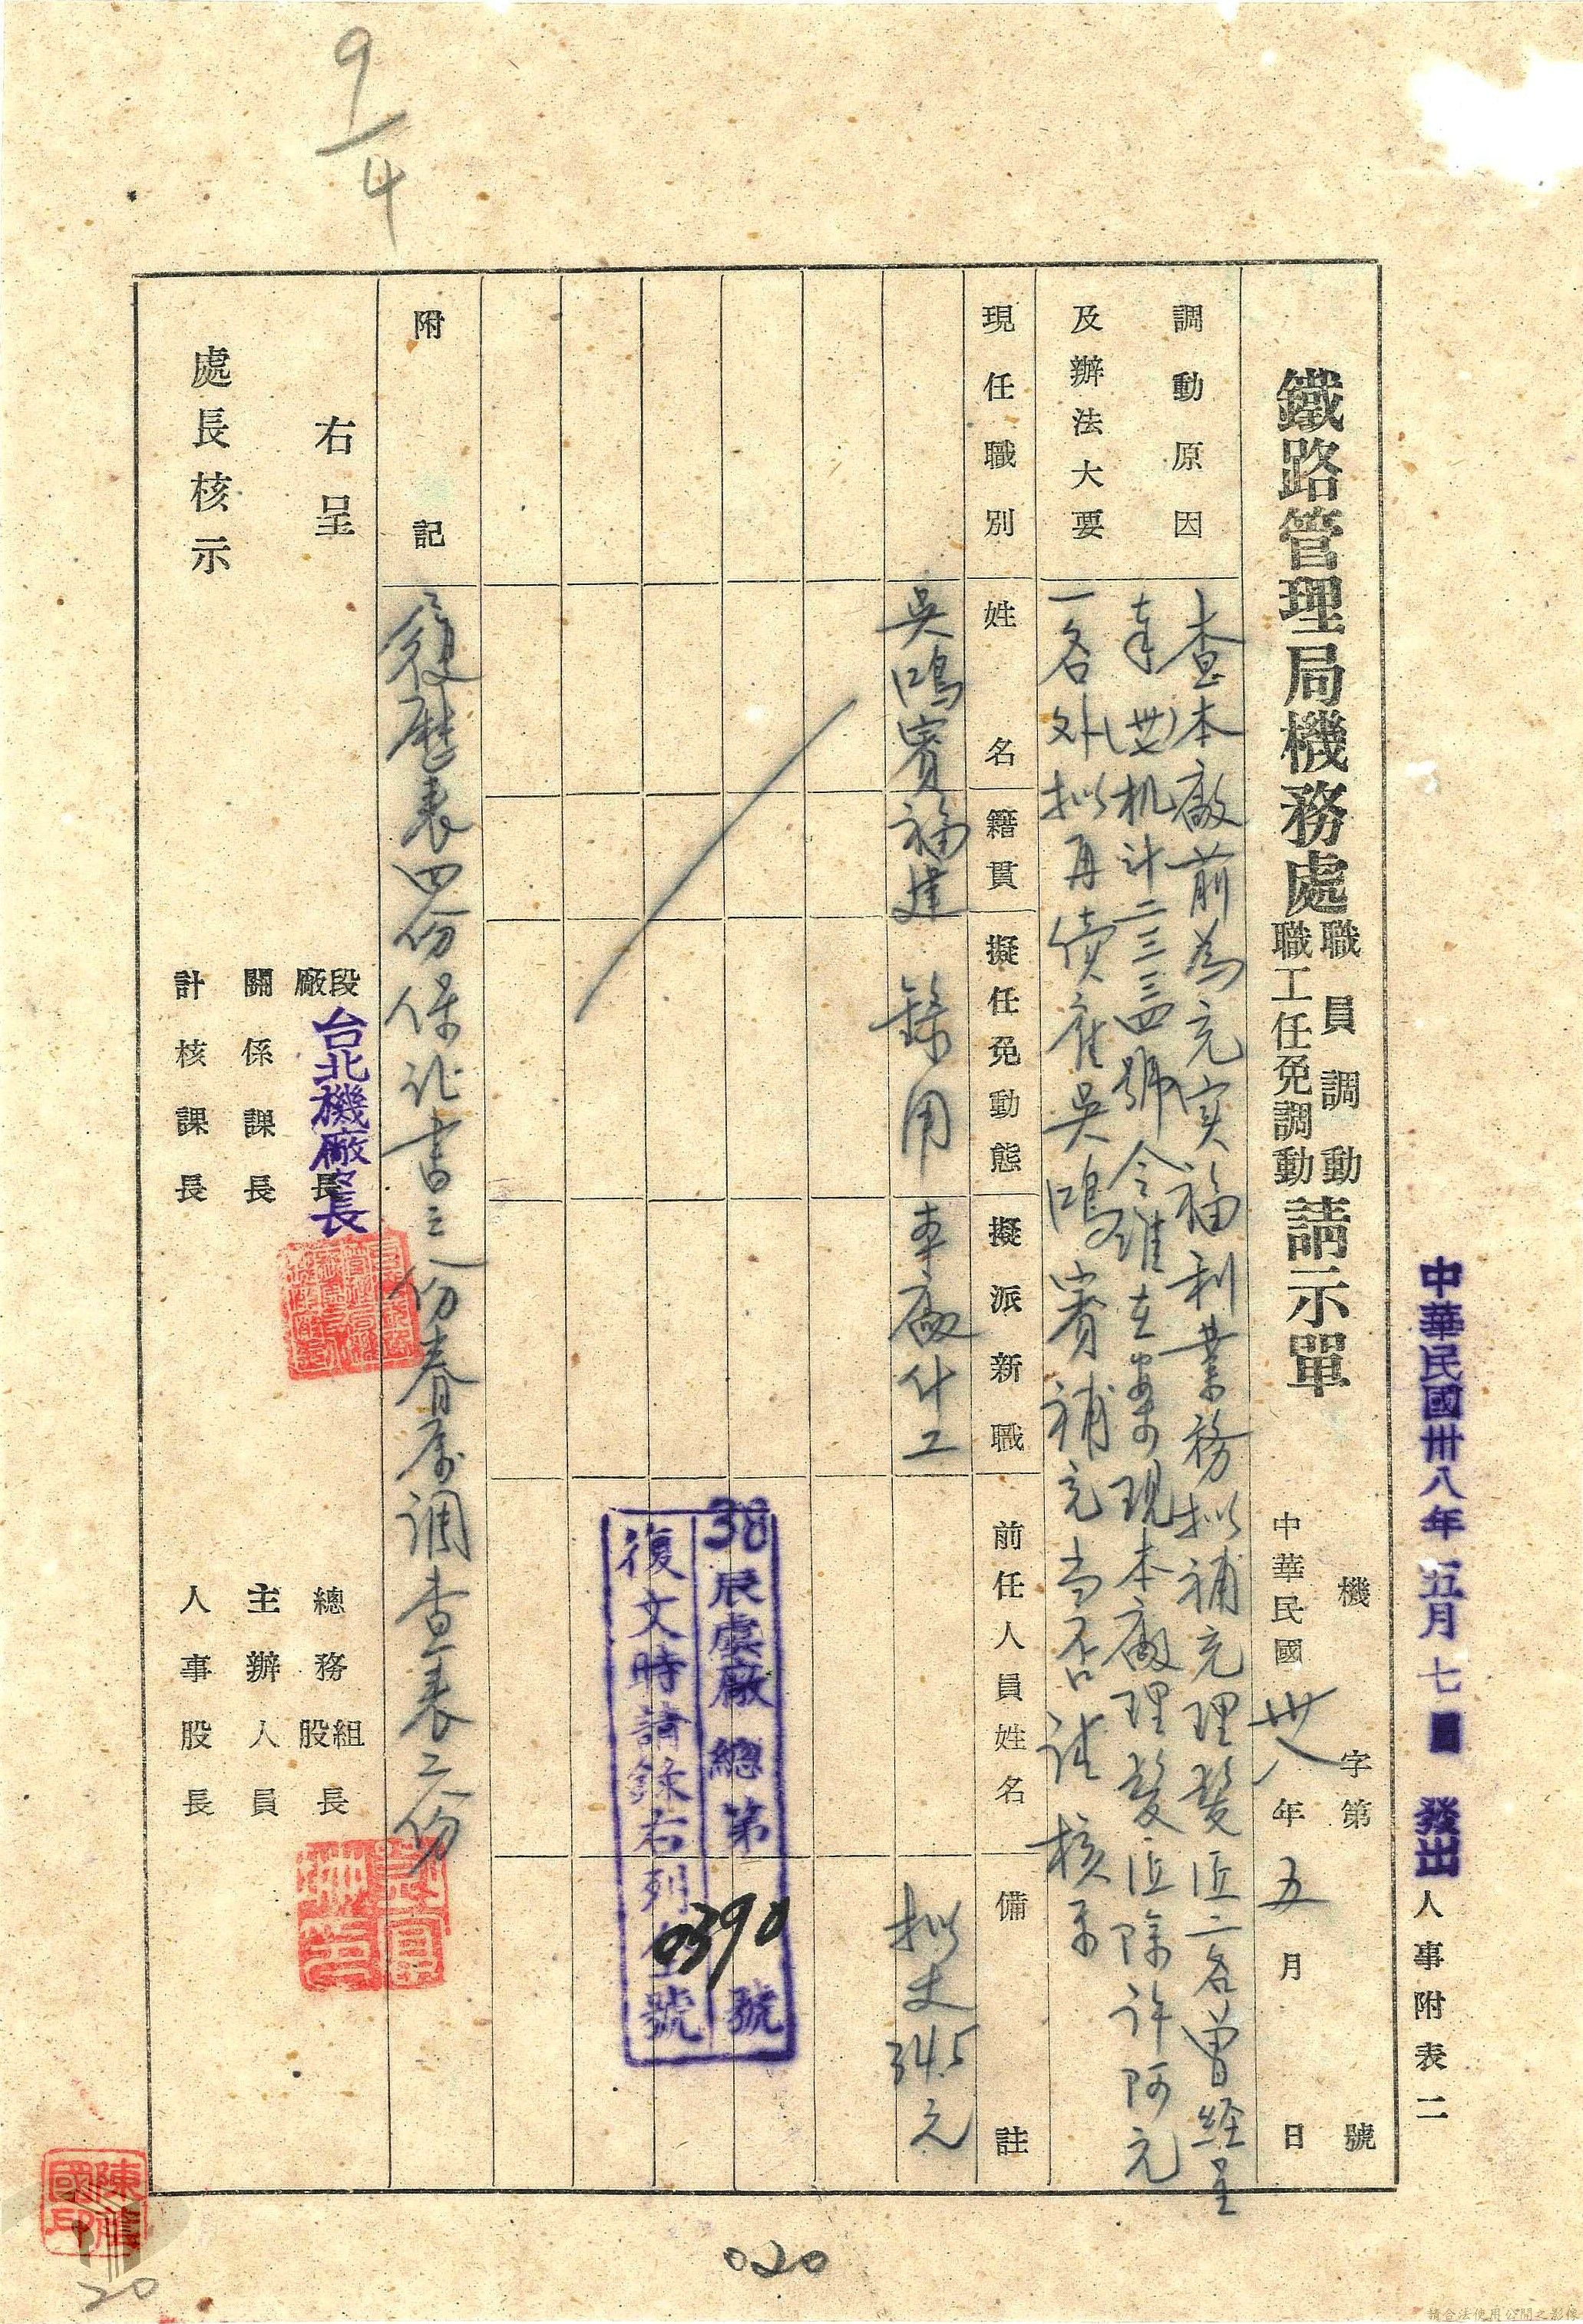 中華民國卅八年五月七日 發出
人事附表二
鐵路管理局機務處
職員調動
職工任免調動
請示單
機 字第 號
中華民國 卅八 年 五 月 日
調動原因
及辦法大要
查本廠前為充实福利業務拟補充理髮匠二名曾経呈
奉(卅七)机计二三三四號令准在案 現本廠理髮匠除许阿元
一名外拟再續雇吳鴻賓補充当否請 核示
現任職別
姓名
籍貫
擬任免動態
擬派新職
前任人員姓名
備註
吳鴻賓
福建
錄用
本廠什工
拟支345元
38辰虞廠總第 0390 號
復文時請錄右列全號
附記
履歷表四份保证書三份眷屬调查表二份
右呈
處長核示
段
廠
長
台北機廠廠長
關係課長
計核課長
總務
組
股
長
主辦人員
人事股長
9/4
020
20
請合法使用公開之影像